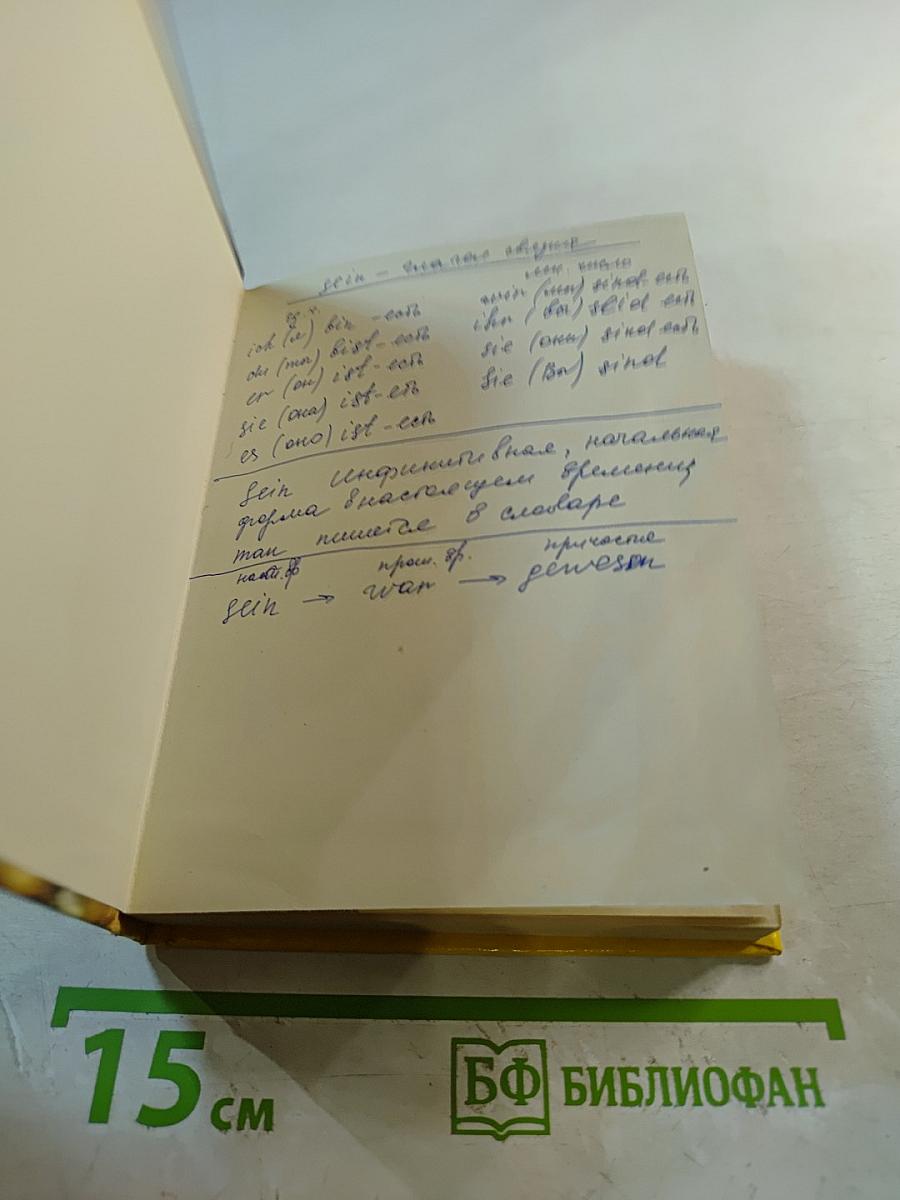 sein – глагол связка
ед. ч. мн. число
ich (я) bin – есть wir (мы) sind есть
du (ты) bist – есть ihr (вы) seid есть
er (он) ist – есть sie (они) sind есть
sie (она) ist – есть Sie (Вы) sind
es (оно) ist – есть
sein Инфинитивная, начальная
форма в настоящем времени,
так пишется в словаре
наст. вр прош. вр. причастие
sein → war → gewesen
15 см
БФ БИБЛИОФАН